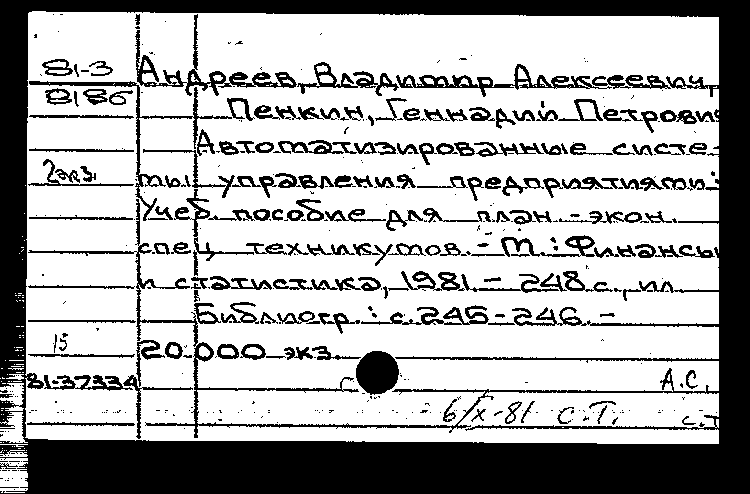 81-3 Андреев, Владимир Алексеевич,
8186 Пенкин, Геннадий Петрович
Автоматизированные систе-
2экз. мы управления предприятиями:
Учеб. пособие для план.-экон.
спец. техникумов. - М.: Финансы
и статистика, 1981. - 248 с., ил.
Библиогр.: с. 245-246. -
15 20.000 экз.
81-37334 А.С.
6/X-81 С.Т. С.Т